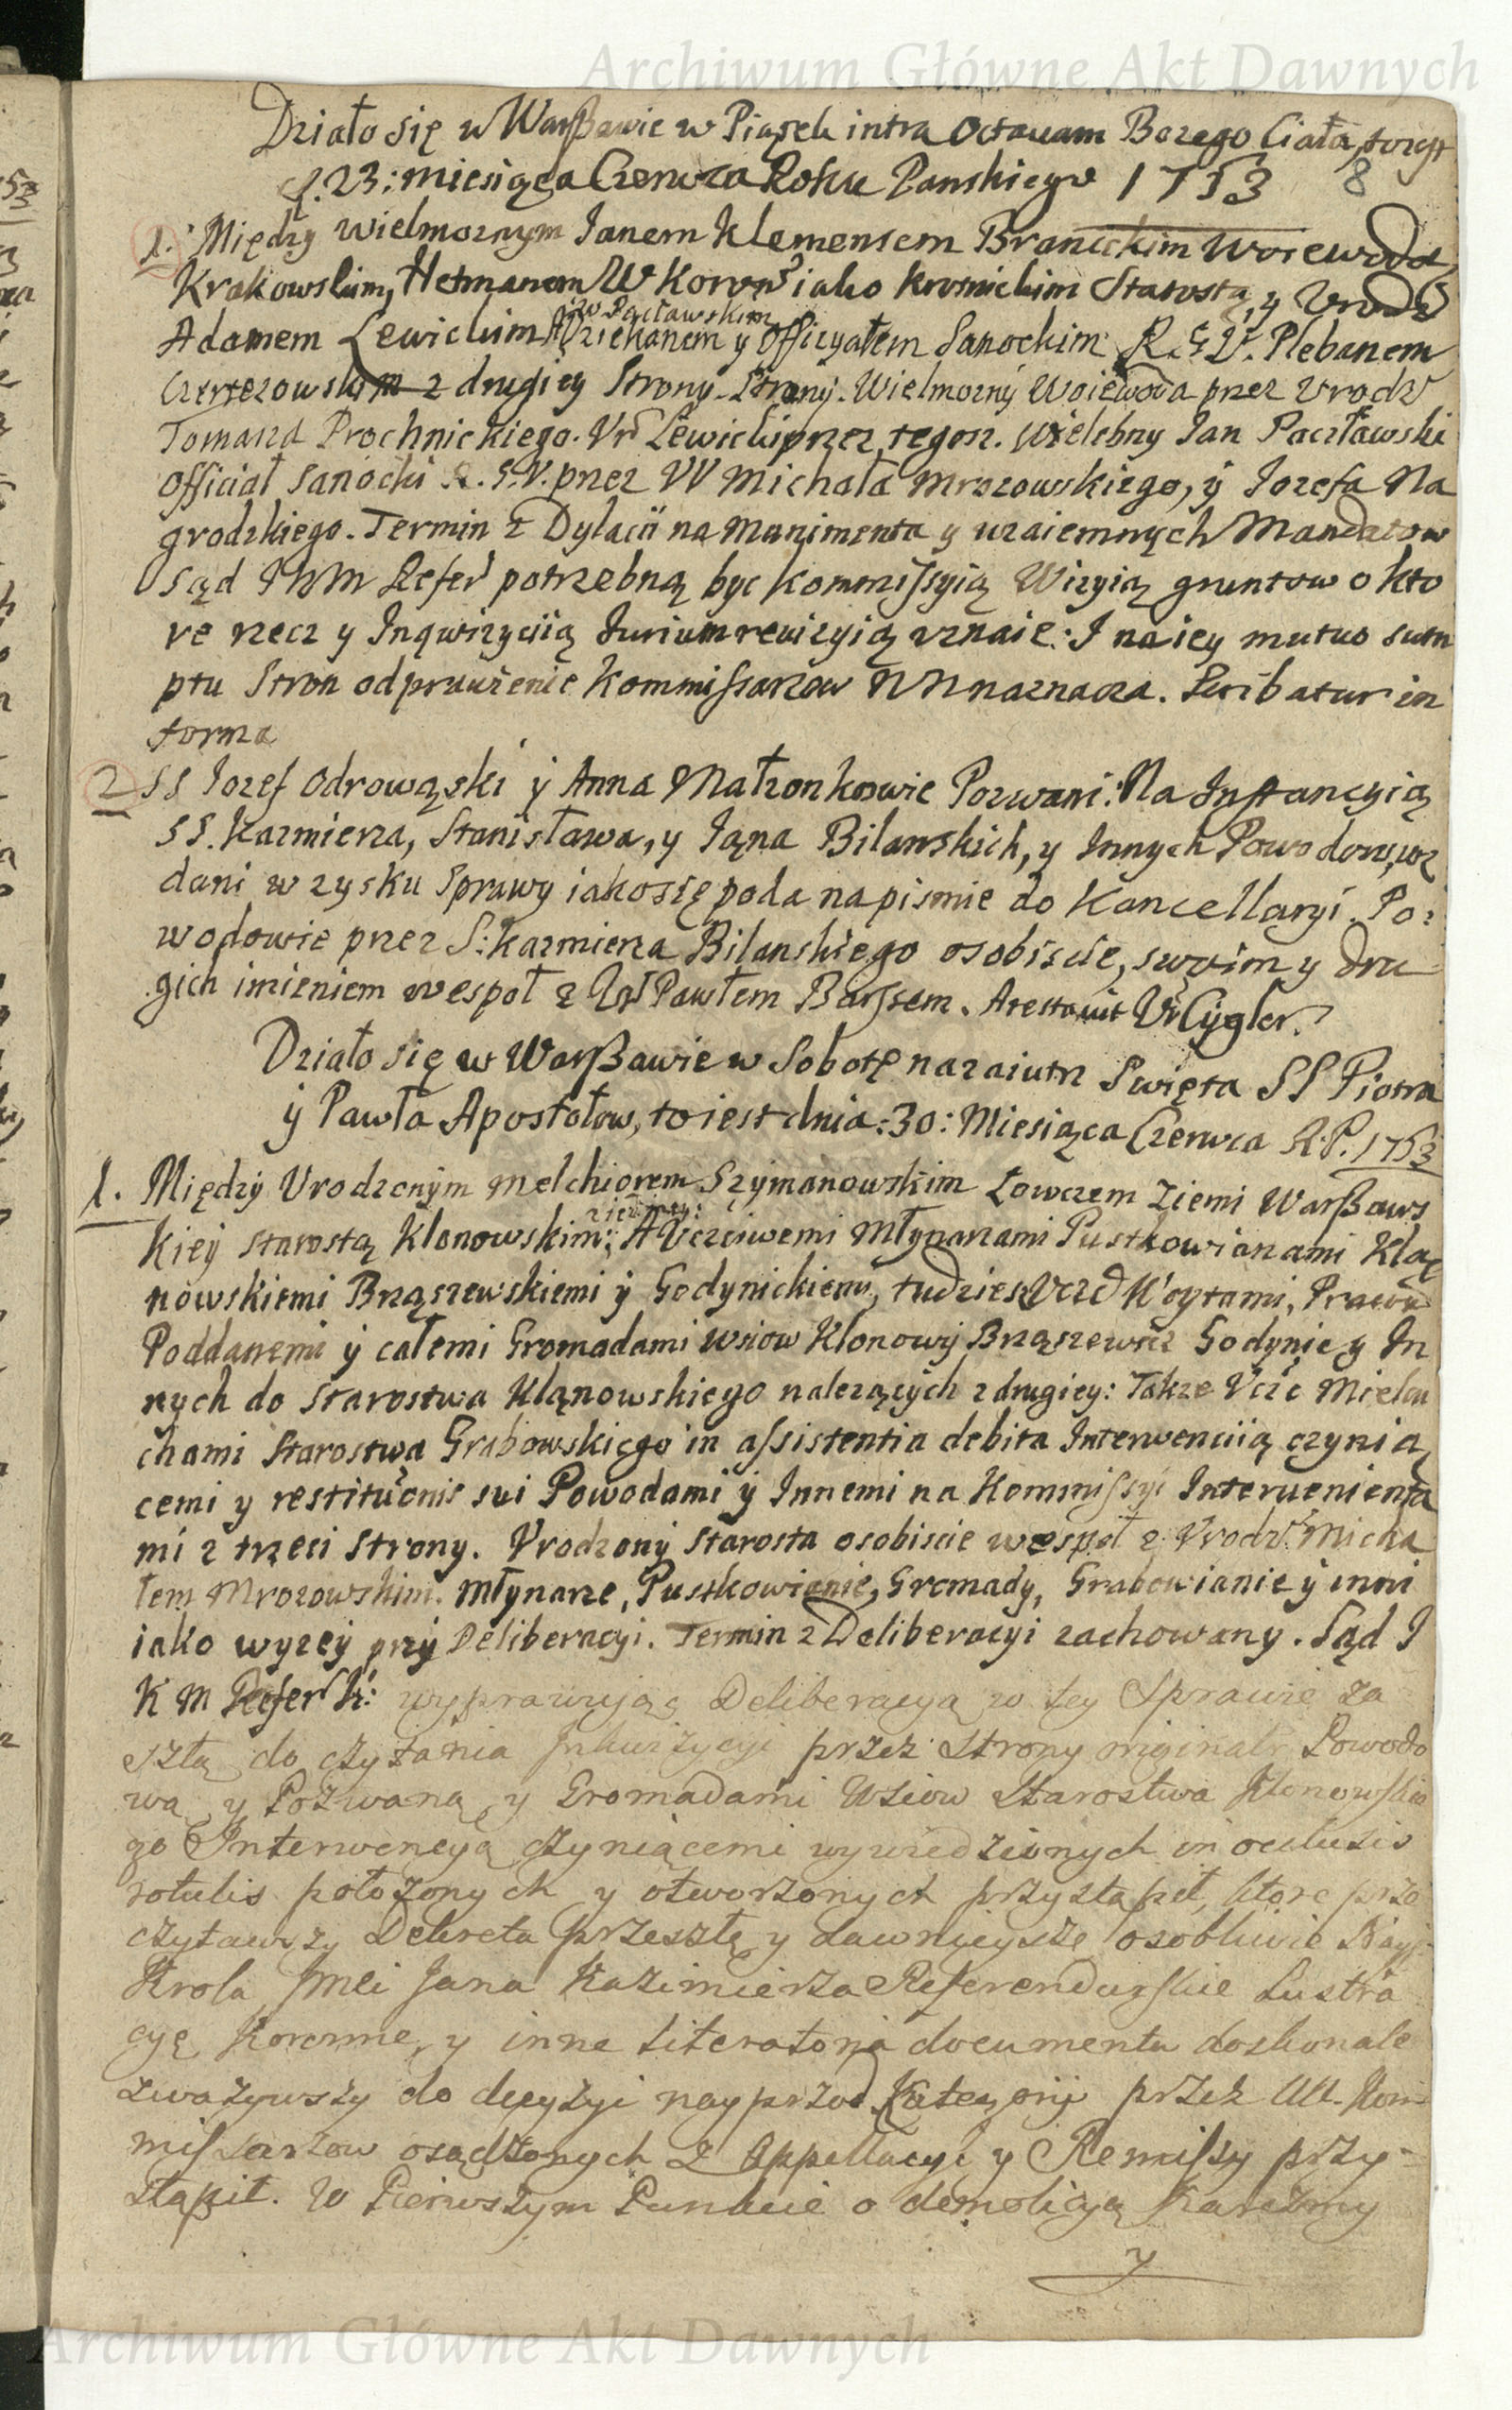 Archiwum Główne Akt Dawnych
Działo się w Warßawie w Piątek intra Octavam Bozego Ciała, to iest
d. 23: miesiąca Czerwca Roku Panskiego 1753 8
1. Między wielmoznym Janem Klemensem Branickim Woiewodą
Krakowskim, Hetmanem W Koron iako krosnickim Starostą, y Urodz
Adamem Lewickim A Dziekanem y Officyałem Sanockim R. G. V. Plebanem
z drugiey Strony. Strony. Wielmozny Woiewoda przez Urodz
Tomasza Prochnickiego. Ur Lewicki przez tegoz. Wielebny Jan Pacztawski
Official Sanocki R. G. V. przez VV Michała Mrozowskiego, y Jozefa Na
grodzkiego. Termin z Dylacii na Munimenta y wzaiemnych Mandatow
Sąd JKM Refer potrzebną byc kommissyią Wizyią gruntow o kto
re rzecz y Inqwizyciią Jurium rewizyią uznaie: I na iey mutuo sum
ptu Stron odprawienie Kommissarzow NN naznacza. Scribatur in
forma
2 SS Jozef Odrowąski y Anna Małzonkowie Pozwani: Na Instancyią
SS. Kazmierza, Stanisława, y Jana Bilanskich, y Innych Powodow, wz
dani w zysku Sprawy iako się poda na pismie do Kancellaryi. Po:
wodowie przez S: Kazmierza Bilanskiego osobiscie, swoim y dru
gich imieniem wespoł z Ur Pawłem Barssem. Arestavit Ur Cygler.
Działo się w Warßawie w Sobotę nazaiutrz Swięta SS Piotra
y Pawła Apostołow, to iest dnia: 30: Miesiąca Czerwca R. P. 1753
1. Między Urodzonym Melchiorem Szymanowskim Łowczem Ziemi Warßaws
kiey Starostą Klonowskim; A Uczciwemi Młynarzami Pustkowianami Klą
nowskiemi Brząszewskiemi y Godynickiemi, tudziesz Ucz Woytami, Prawd
Poddanemi y całemi Gromadami wsiow Klonowy Brząszewicz Godynic y In
nych do Starostwa Kląnowskiego nalezących z drugiey: Takze Ucz Mielu
chami Starostwa Grabowskiego in assistentia debita Interwenciią czynią
cemi y restitucionis sui Powodami y Innemi na Kommissyi Interuenienta
mi z trzeci Strony. Urodzony Starosta osobiscie wespoł z Urodz Micha
łem Mrozowskim. Młynarze, Pustkowianie, Gromady, Grabowianie y inni
iako wyzey przy Deliberacyi. Termin z Deliberacyi zachowany. Sąd J
K M Refer K: wyprawuiąc Deliberacyą w tey Sprawie za
szłą do czytania Inkwizycyi przez Strony originalr Powodo
wą y Pozwaną y Gromadami Wsiow Starostwa Klonowskie
go Interwencyą czyniącemi wywiedzionych in occlusis
rotulis położonych y otworzonych przystąpił, ktore prze
czytawszy Dekreta przeszłe y dawnieysze osobliwie Nayj:
Krola Jmci Jana Kazimierza Referendarskie Lustra
cyę Koronne y inne Literatoria documenta doskonale
zważywszy do decyzyi nayprzod Kategoryi przez UU. Kom
missarzow osądzonych z Appellacyi y Remissy przy-
stąpił. W Pierwszym Punkcie o demolicyą Karczmy
y
Archiwum Główne Akt Dawnych